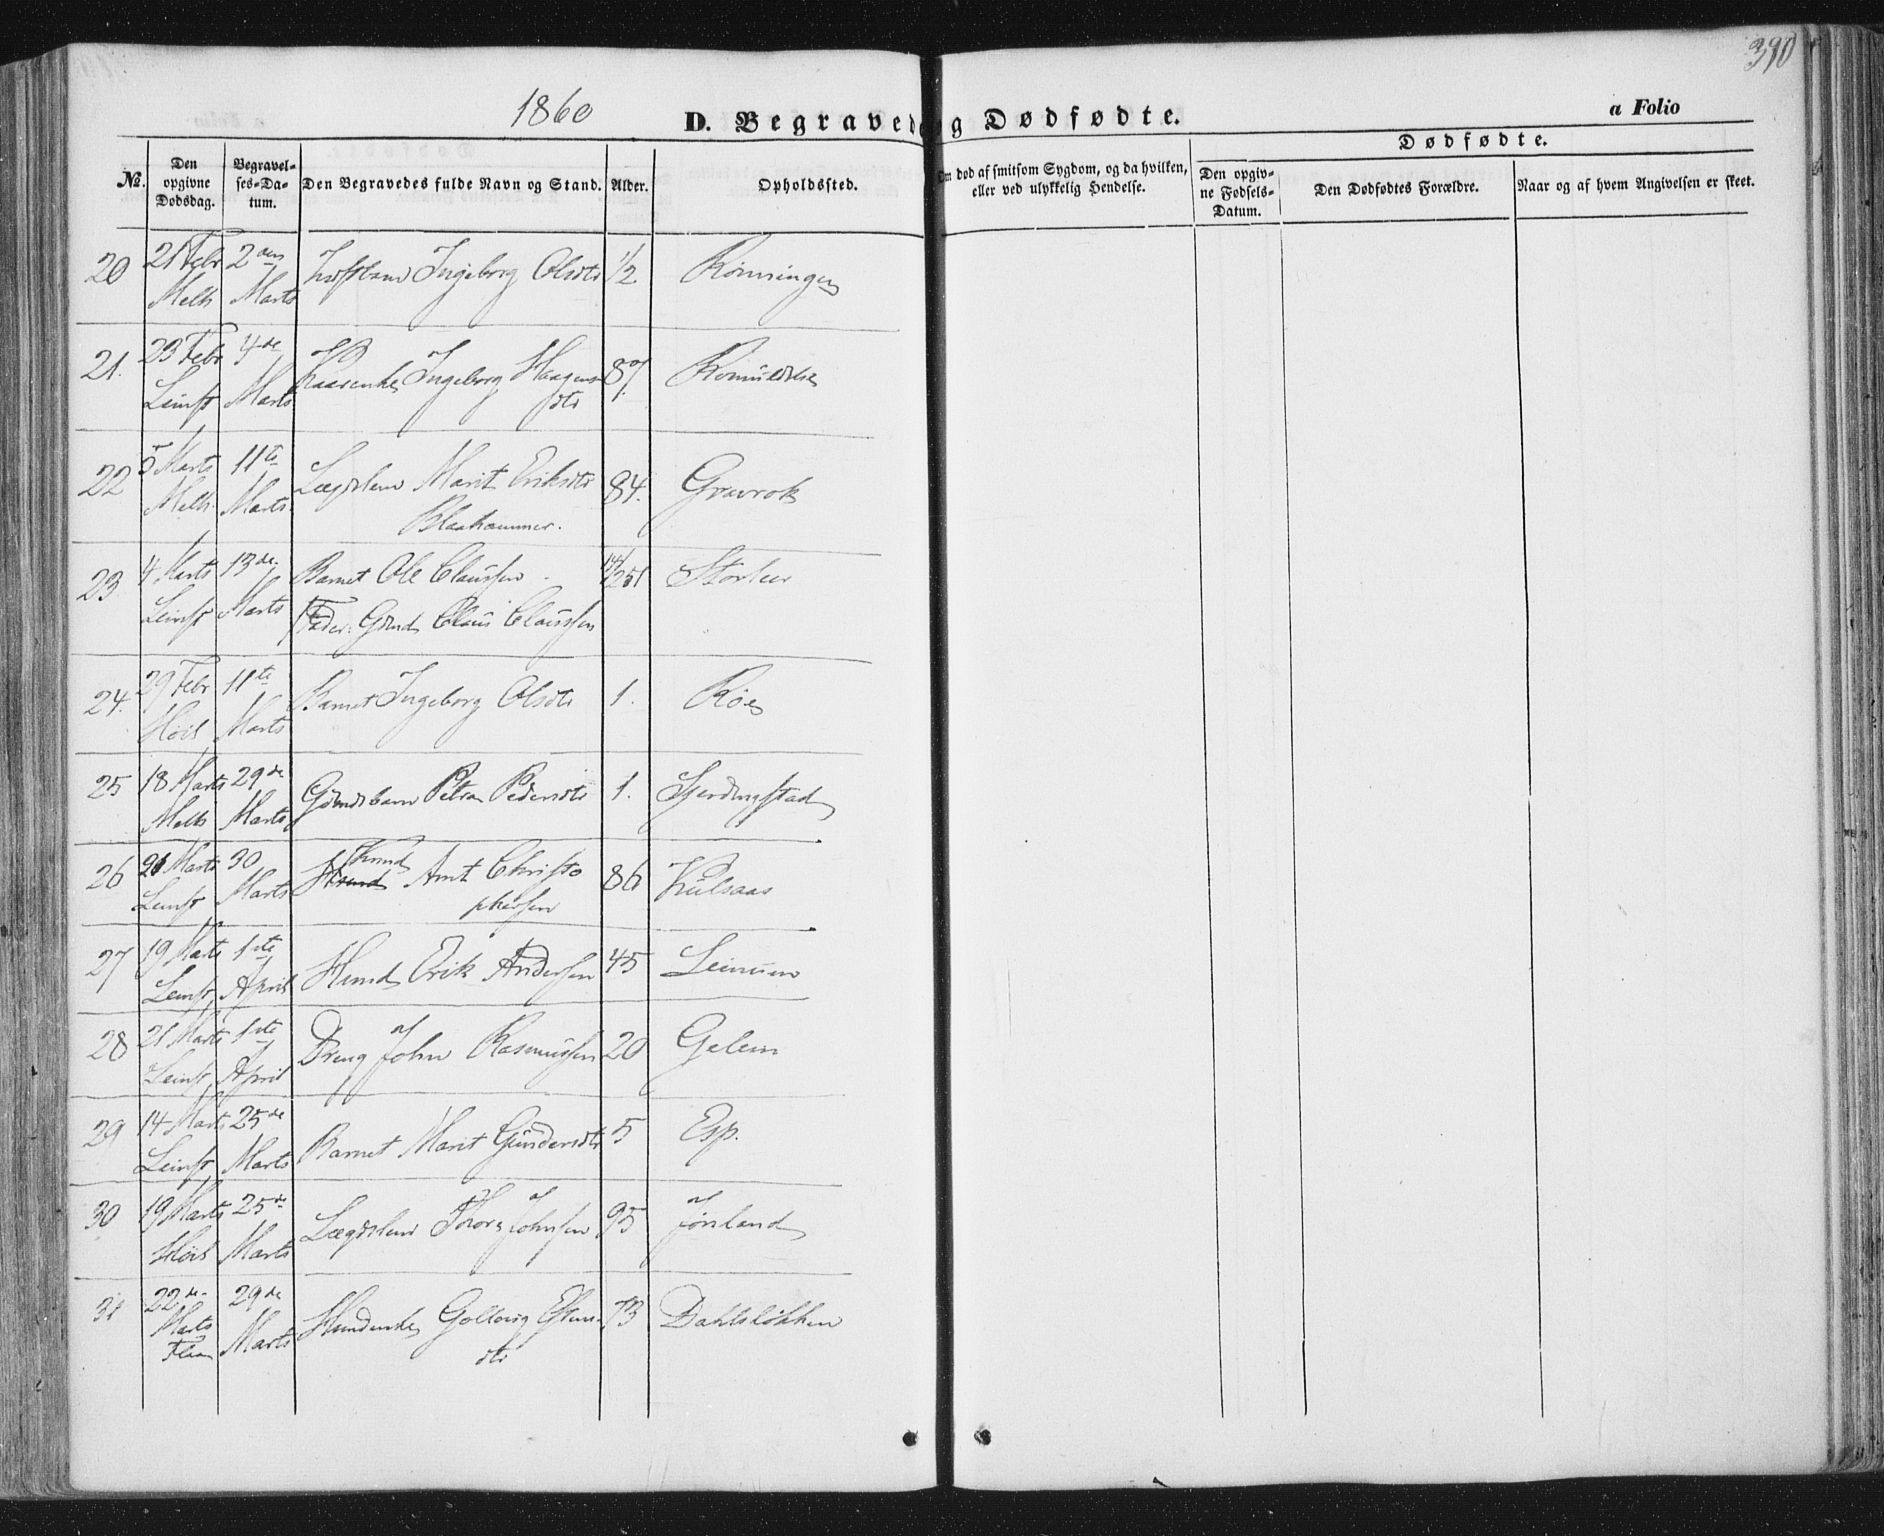 390
1860
D. Begravede og Dødfødte.
a Folio
Dødfødte.
No.
Den opgivne Dødsdag.
Begravelses-Datum.
Den Begravedes fulde Navn og Stand.
Alder.
Opholdssted.
Om død af smitsom Sygdom, og da hvilken, eller ved ulykkelig Hendelse.
Den opgivne Fødsels-Datum.
Den Dødfødtes Forældre.
Naar og af hvem Angivelsen er skeet.
20 21 Febr Melh 2den Marts Ingeborg Olsdtr 1/2 Rønningen
21. 23 Febr Leinst 4de Marts Kaarenke Ingeborg Haagensdtr 87
22 5 Marts Melh. 11te Marts. Lægdslem Marit Eriksdtr 84. Gravrok
Blaahammer.
23 4 Marts Leinst 13de Marts Barnet Ole Claussen Storler
Fader: Gbmd Claus Claussen
24. 29 Febr Høil 11te Marts Barnet Ingeborg Olsdtr 1. Røe
25 18 Marts Melh 29de Marts Gbmdsbarn Petra Pedersdtr 1. Gjerdingstad
26 21 Marts Leinst 30 Marts Arnt Christophersen 86 Kulsaas
27 19 Marts Leinst 1ste April Husmd Erik Andersen 45 Leinum
28 21 Marts Leinst 1ste April Dreng John Rasmussen 20 Gelem
29 14 Marts Leinst 25de Marts Barnet Marit Gundersdtr 5 Esp.
30 19 Marts Høil 25de Marts Lægdslem Thore Johnsen 95 Jonland
31 22de Marts Flaa 29de Marts Husmdenke Golloug Estensdtr 73 Dahlsløkken